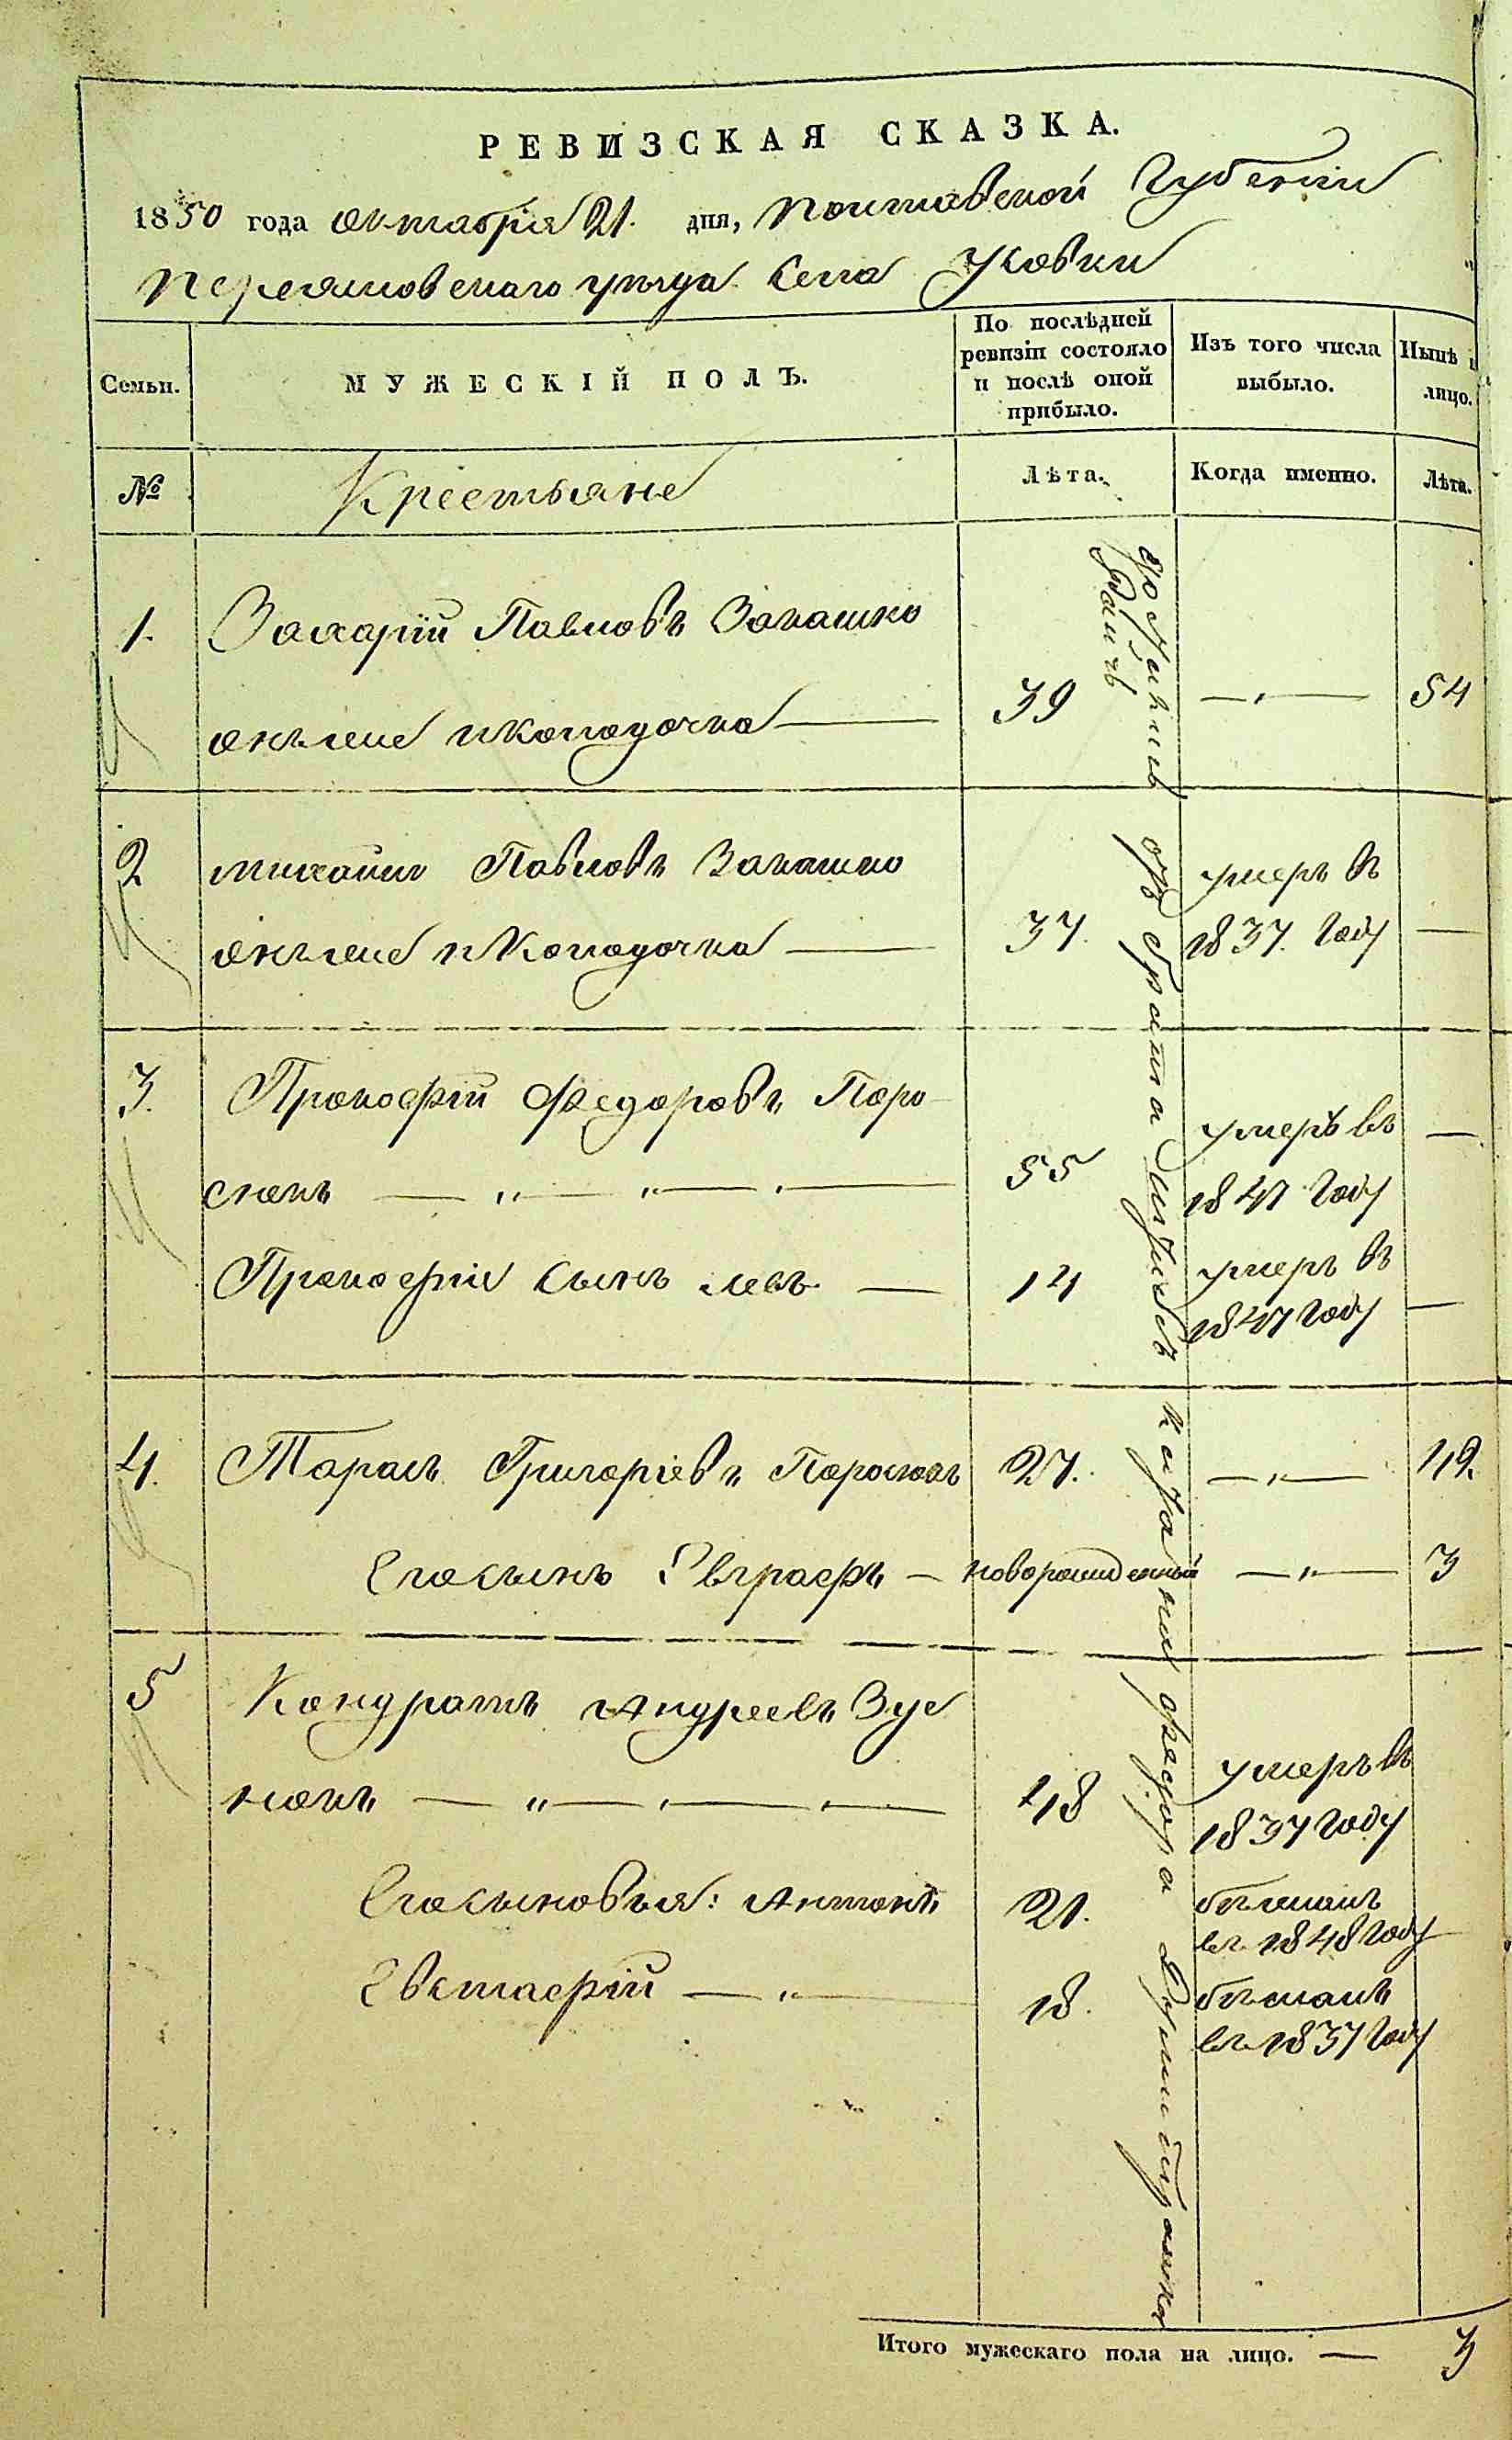 РЕВИЗСКАЯ СКАЗКА.
1850 года октября 21. дня, Полтавской Губернии
Переяславскаго уезда Села Усовки
Семьи.
МУЖЕСКІЙ ПОЛЪ.
По послѣдней ревизіи состояло и послѣ оной прибыло.
Изъ того числа выбыло.
Нынѣ на лицо.
№
Крестьяне
Лѣта.
Когда именно.
Лѣта.
1. Захарій Павловъ
39 — " — 54
2 Михаилъ Павловъ
умеръ въ
37. 1837. Году —
3. Прокофій Федоровъ Поро-
сюкъ — " — " — " —
55 умеръ въ 1847 Году —
Прокофія сынъ левъ — 14 умеръ въ 1847 Году —
4. Тарасъ Григоріевъ Поросюкъ 27. — " — 42.
Его сынъ Евграфъ — новорожденный — " — 3
5 Кондратъ Андреевъ Зуе
нокъ — " — " — " —
48 умеръ въ 1837 Году
Его сыновья: Антонъ 21. бежалъ въ 1848 Году
Евстафій — " — 18. бежалъ въ 1837 Году
Итого мужескаго пола на лицо. — 3